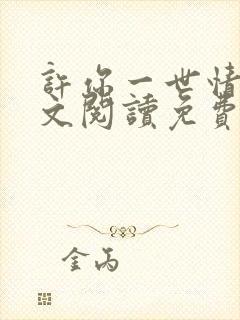 許你一世情
文閱讀免費
金丙